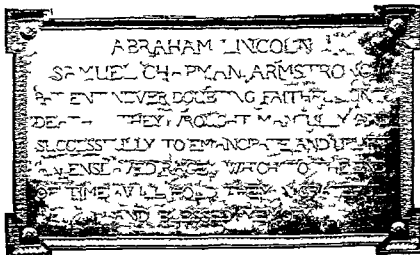 ABRAHAM LINCOLN
SAMUEL CHAPMAN ARMSTRONG
PATIENT NEVER DOUBTING FAITHFUL IN
DEATH THEY WROUGHT MANFULLY AND
SUCCESSFULLY TO EMANCIPATE AND UPLIFT
AN ENSLAVED RACE WHICH TO THE END
OF TIME WILL HOLD THEM
AND BLESSED